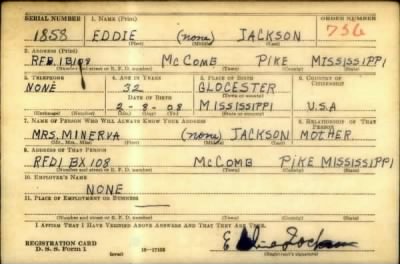 SERIAL NUMBER 1. NAME (Print) ORDER NUMBER
1858 EDDIE (none) JACKSON 756
(First) (Middle) (Last)
2. ADDRESS (Print)
RFD. 1 B 108 McComb PIKE MISSISSIPPI
(Number and street or R. F. D. number) (Town) (County) (State)
3. TELEPHONE 4. AGE IN YEARS 5. PLACE OF BIRTH 6. COUNTRY OF CITIZENSHIP
NONE 32 GLOCESTER
DATE OF BIRTH (Town or county)
2-8-08 MISSISSIPPI U.S.A
(Exchange) (Number) (Mo.) (Day) (Yr.) (State or country)
7. NAME OF PERSON WHO WILL ALWAYS KNOW YOUR ADDRESS 8. RELATIONSHIP OF THAT PERSON
MRS. MINERVA (none) JACKSON MOTHER
(Mr., Mrs., Miss) (First) (Middle) (Last)
9. ADDRESS OF THAT PERSON
RFD1 BX 108 McComb PIKE MISSISSIPPI
(Number and street or R. F. D. number) (Town) (County) (State)
10. EMPLOYER'S NAME
NONE
11. PLACE OF EMPLOYMENT OR BUSINESS
(Number and street or R. F. D. number) (Town) (County) (State)
I AFFIRM THAT I HAVE VERIFIED ABOVE ANSWERS AND THAT THEY ARE TRUE.
REGISTRATION CARD
D. S. S. Form 1 (over) 16-17105 (Registrant's signature)